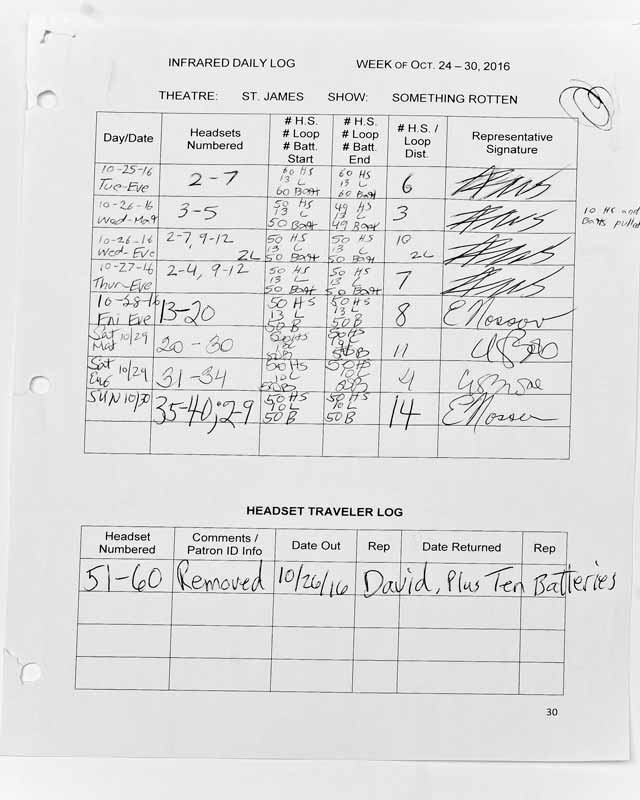 INFRARED DAILY LOG WEEK OF OCT. 24 – 30, 2016
THEATRE: ST. JAMES SHOW: SOMETHING ROTTEN
Day/Date
Headsets
Numbered
# H.S.
# Loop
# Batt.
Start
# H.S.
# Loop
# Batt.
End
# H.S. /
Loop
Dist.
Representative
Signature
10-25-16
Tue-Eve
2-7
60 HS
13 L
60 Batt
60 HS
13 L
60 Batt
6
10-26-16
Wed-Mat
3-5
50 HS
13 L
50 Batt
49 HS
13 L
49 Batt
3
10 HS and
Batts pulled
10-26-16
Wed-Eve
2-7, 9-12
2L
50 HS
13 L
50 Batt
50 HS
13 L
50 Batt
10
2L
10-27-16
Thur-Eve
2-4, 9-12
50 HS
13 L
50 Batt
50 HS
13 L
50 Batt
7
10-28-16
Fri Eve
13-20
50 HS
13 L
50 B
50 HS
13 L
50 B
8
Sat 10/29
Mat
20-30
50 HS
50 B
50 HS
50 B
11
Sat 10/29
Eve
31-34
50 HS
10 L
50 B
50 HS
10 L
50 B
4
SUN 10/30
35-40; 2-9
50 HS
10 L
50 B
50 HS
10 L
50 B
14
HEADSET TRAVELER LOG
Headset
Numbered
Comments /
Patron ID Info
Date Out
Rep
Date Returned
Rep
51-60 Removed 10/26/16 David, Plus Ten Batteries
30